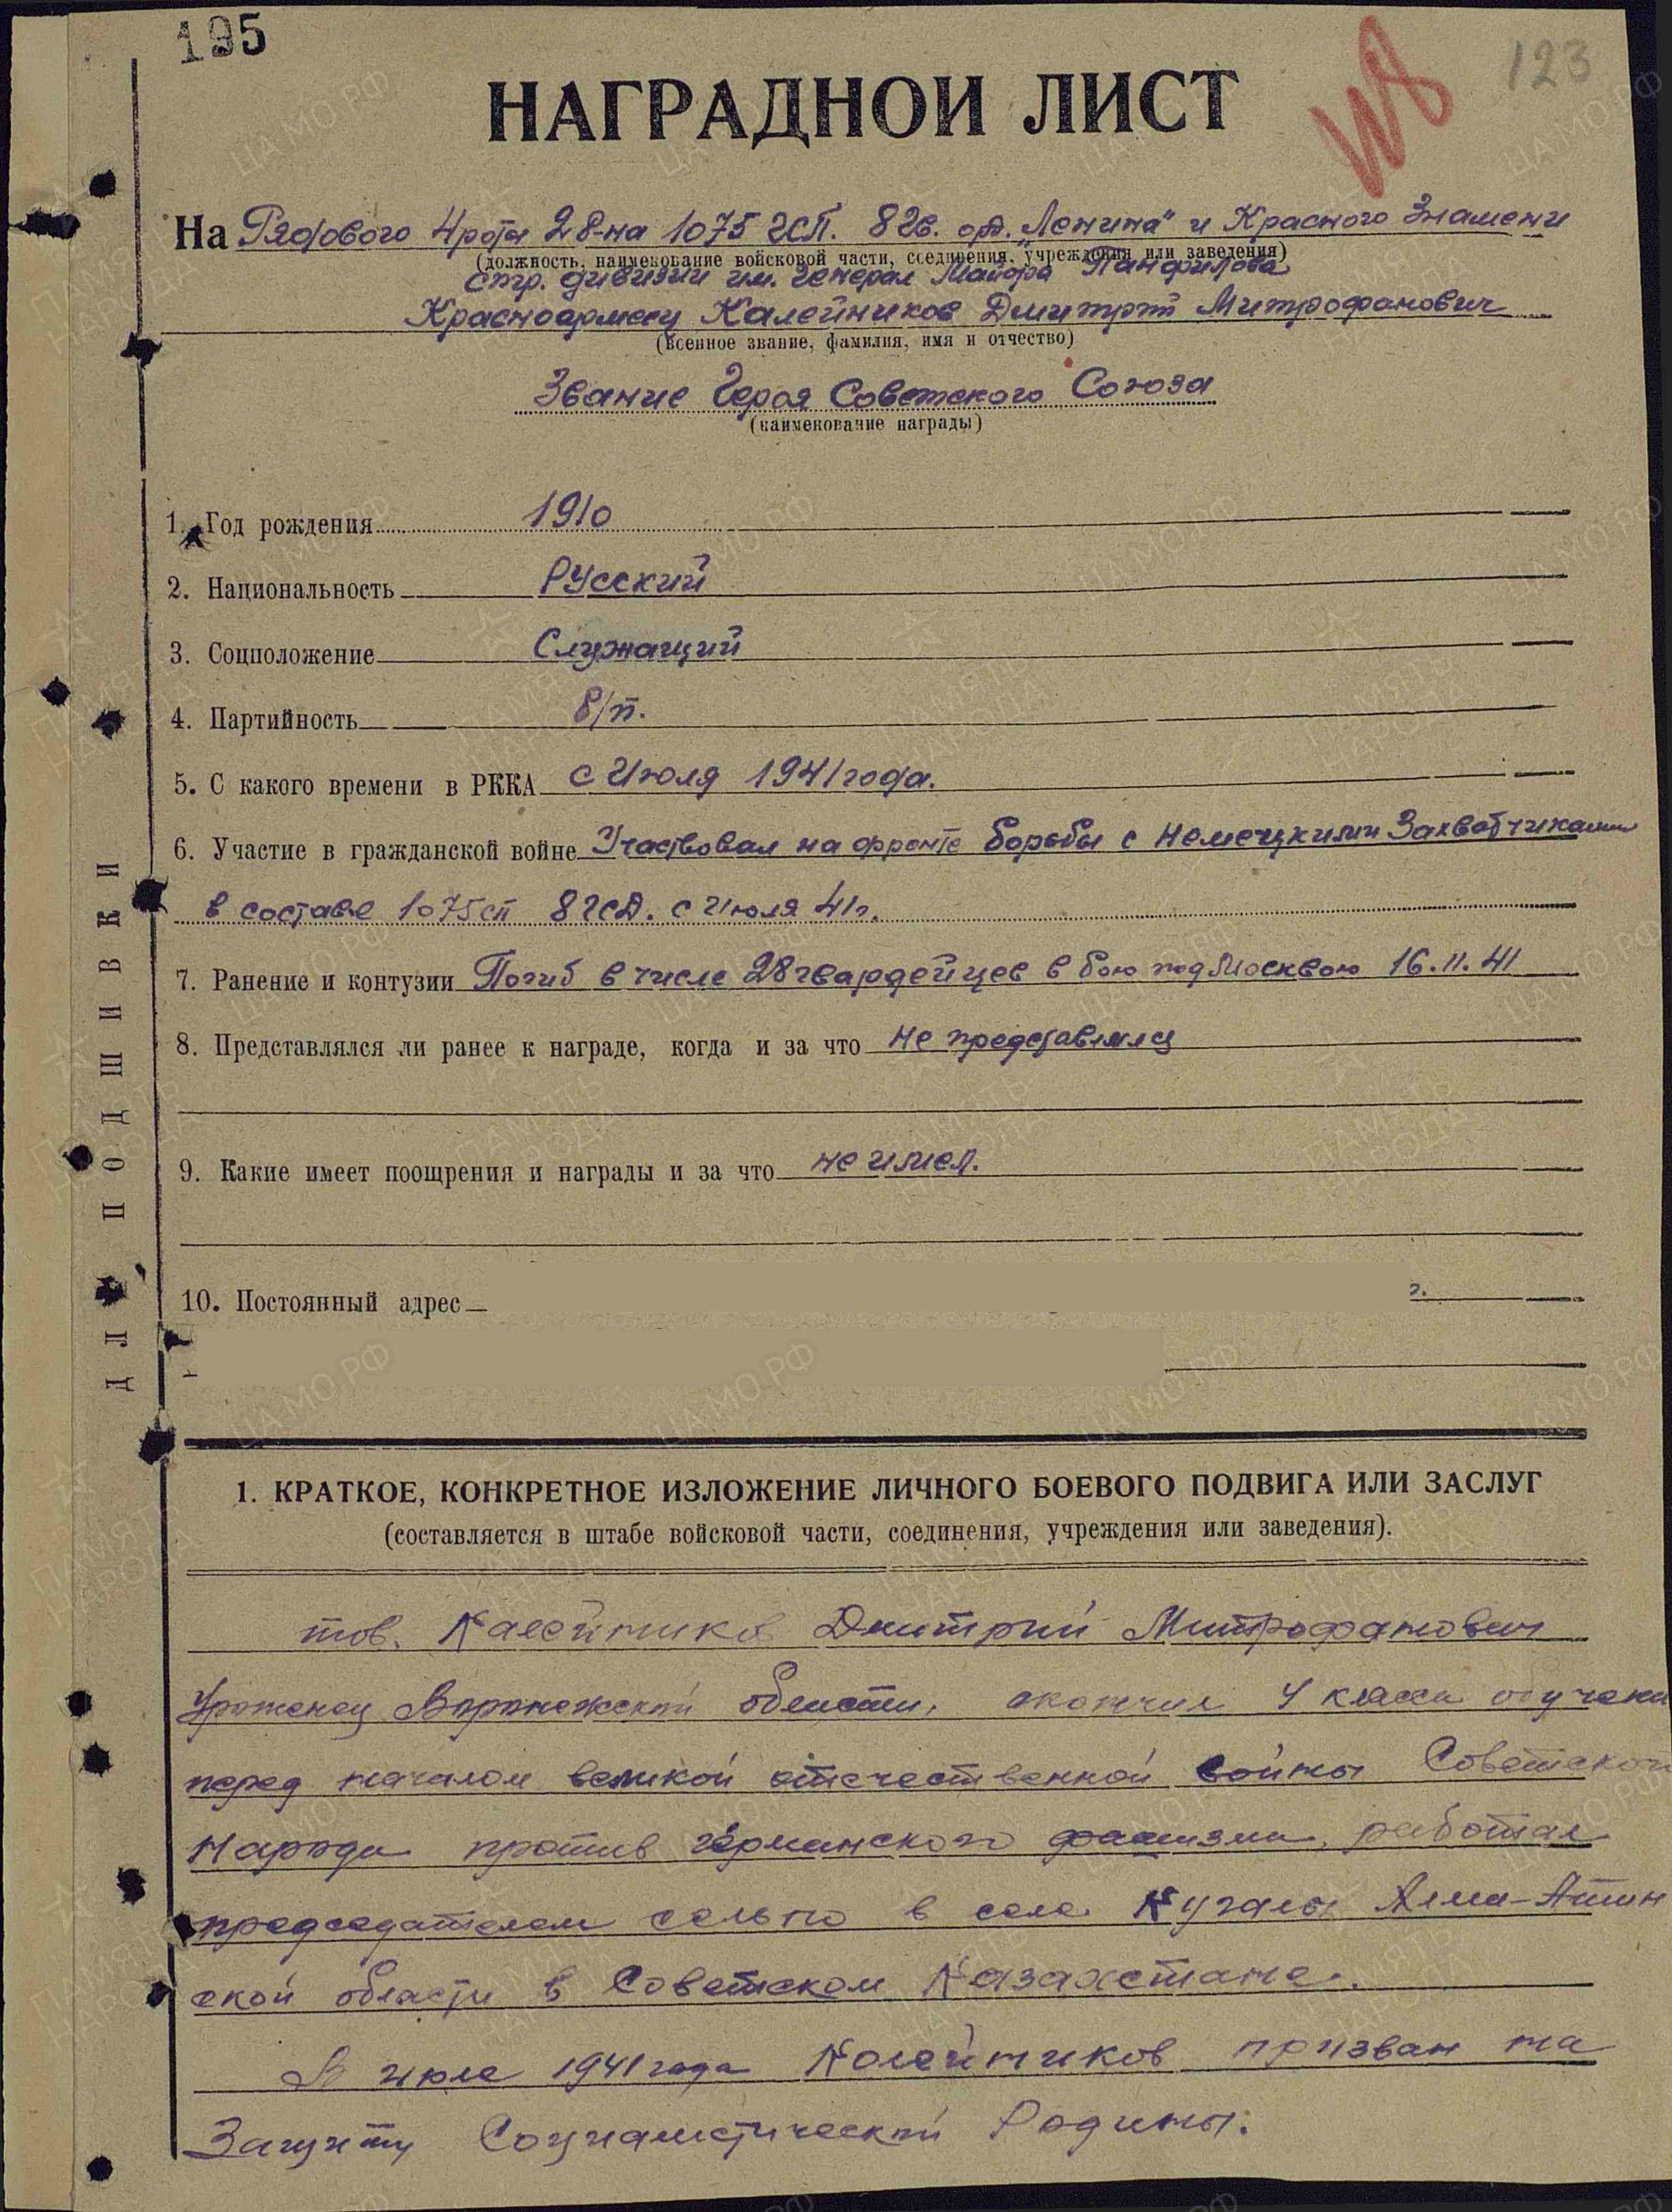 195
123
НАГРАДНОЙ ЛИСТ
На Рядового 4 роты 2 б-на 1075 гсп. 8 гв. орд. „Ленина" и Красного Знамени
(должность, наименование войсковой части, соединения, учреждения или заведения)
стр. дивизии им. генерал Майора Панфилова
Красноармеец Калейников Дмитрий Митрофанович
(военное звание, фамилия, имя и отчество)
Звание Героя Советского Союза
(наименование награды)
1. Год рождения 1910
2. Национальность Русский
3. Соцположение Служащий
4. Партийность б/п.
5. С какого времени в РККА с Июля 1941 года.
6. Участие в гражданской войне Участвовал на фронте борьбы с Немецкими Захватчиками
в составе 1075 сп 8 гсд. с Июля 41 г.
7. Ранение и контузии Погиб в числе 28 гвардейцев в бою под Москвою 16.11.41
8. Представлялся ли ранее к награде, когда и за что не представлялся
9. Какие имеет поощрения и награды и за что не имел.
10. Постоянный адрес г.
ДЛЯ ПОДШИВКИ
1. КРАТКОЕ, КОНКРЕТНОЕ ИЗЛОЖЕНИЕ ЛИЧНОГО БОЕВОГО ПОДВИГА ИЛИ ЗАСЛУГ
(составляется в штабе войсковой части, соединения, учреждения или заведения).
тов. Калейников Дмитрий Митрофанович
Уроженец Воронежской области, окончил 4 класса
перед началом великой отечественной войны Советского
Народа против германского фашизма, работал
председателем сельпо в селе Кугалы Алма-Атин
ской области в Советском Казахстане.
В июле 1941 года Колейников призван на
Защиту Социалистической Родины.
ЦА МО РФ
ПАМЯТЬ НАРОДА